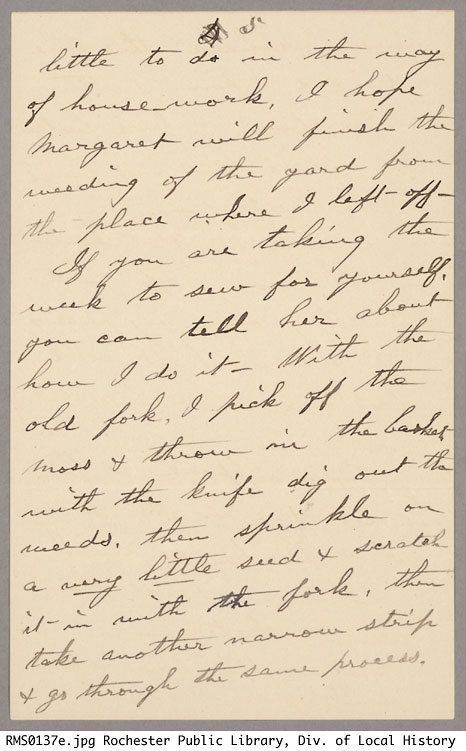 5
little to do in the way
of house-work, I hope
Margaret will finish the
weeding of the yard from
the place where I left-off-
If you are taking the
week to sew for yourself,
you can tell her about
how I do it- With the
old fork, I pick off the
moss & throw in the basket
with the knife dig out the
weeds, then sprinkle on
a very little seed & scratch
it-in with the fork, then
take another narrow strip
& go through the same process.
RMS0137e.jpg Rochester Public Library, Div. of Local History